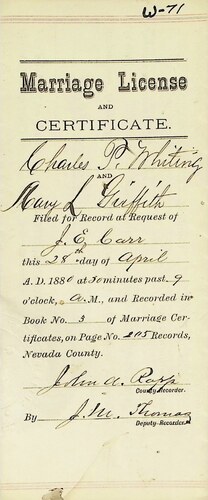 W-71
Marriage License
AND
CERTIFICATE.
Charles P. Whiting
AND
Mary L Griffith
Filed for Record at Request of
J. E. Carr
this 28th day of April
A. D. 1880 at 50 minutes past 9
o'clock, A. M., and Recorded in
Book No. 3 of Marriage Cer-
tificates, on Page No. 205 Records,
Nevada County.
John A. Rapp
County Recorder.
By J. M. Thomas
Deputy Recorder.